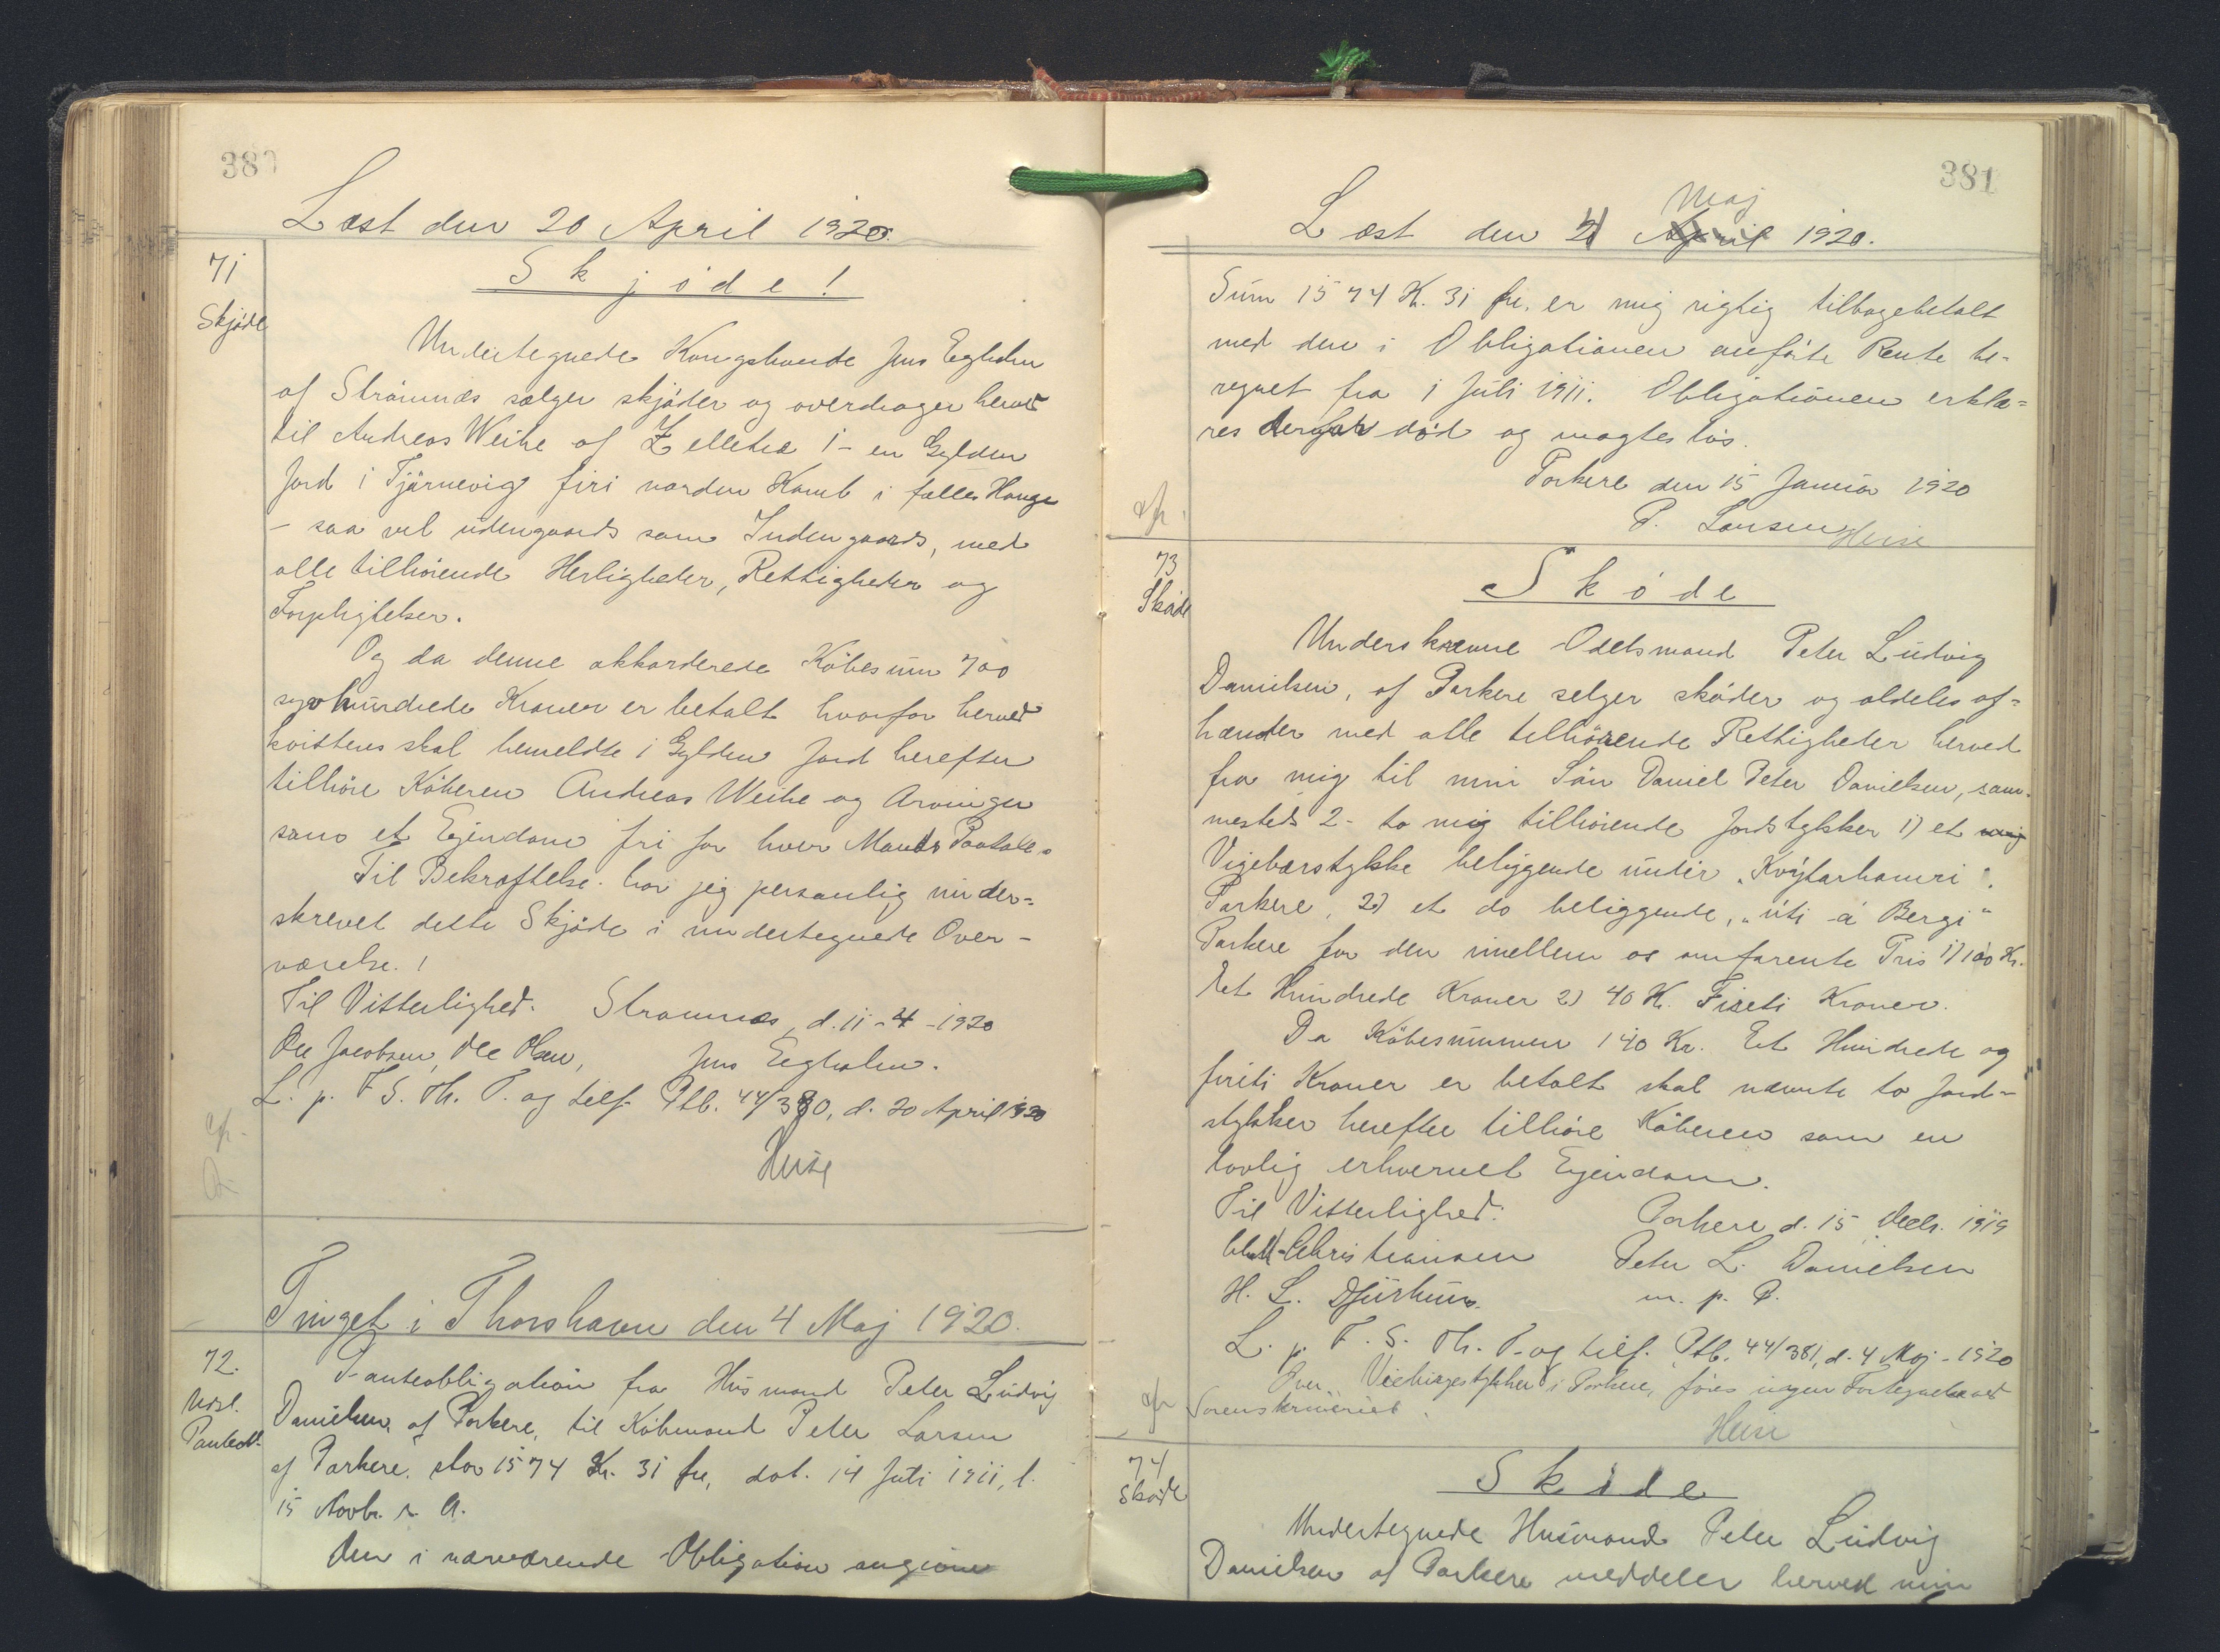 380
Læst den 20 April 1920.
71
Skjøde
Skjøde!
Undertegnede Kongsbonde Jens Eegholm
af Strømnæs sælger skjøder og overdrager herved
til Andreas Weihe af Zelletræ 1 - en Gylden
Jord i Tjørnevig firi norden Kamb i fælles Hauge
- saa vel udengaards som Indengaards, med
alle tilhørende Herligheder, Rettigheder og
Forpligtelser.
Og da denne akkorderede Købesum 700
syvhundrede Kroner er betalt hvorfor herved
kvitteres skal bemeldte 1 Gylden Jord herefter
tilhøre Køberen Andreas Weihe og Arvinger
som et Ejendom fri for hver Mands Paatale.
Til Bekræftelse har jeg personlig under=
skrevet dette Skjøde i undertegnede Over-
værelse. !
Til Vitterlighed. Strømnæs, d. 11-4-1920
Ole Jacobsen, Ole Olsen, Jens Eegholm.
L. p. F. S. Th. P. og tilf. Ptb. 44/380, d. 20 April 1920
Heise
Tinget i Thorshavn den 4 Maj 1920.
72.
Udsl.
Panteobl.
Panteobligation fra Husmand Peter Ludvig
Danielsen af Porkere, til Købmand Peter Larsen
af Porkere, stor 1574 Kr. 31 Øre, dat. 14 Juli 1911, l.
15 Novbr. s. A.
Den i nærværende Obligation angivne
381
Læst den 4 Maj April 1920.
Sum 1574 Kr. 31 Øre, er mig rigtig tilbagebetalt
med den i Obligationen anførte Rente be-
regnet fra 1 Juli 1911. Obligationen erklæ=
res derfor død og magtesløs.
Porkere den 15 Januar 1920
P. Larsen
Heise
73
Skøde
Skøde
Underskrevne Odelsmand Peter Ludvig
Danielsen, af Porkere selger skøder og aldeles af=
hænder med alle tilhörende Rettigheder herved
fra mig til min Søn Daniel Peter Danielsen, sam-
mesteds 2 - to mig tilhørende Jordstykker 1) et mig
Vigebøarstykke beliggende undir "Kvýtarhamri"
Porkere, 2) et do beliggende, "úti á Bergi"
Porkere for den imellem os omforente Pris 1) 100 Kr.
Et Hundrede Kroner 2) 40 Kr. Fireti Kroner.
Da Købesummen 140 Kr. Et Hundrede og
fireti Kroner er betalt skal nævnte to Jord-
stykker herefter tilhøre Køberen som en
lovlig erhvervet Ejendom.
Til Vitterlighed: Porkere, d. 15 Decbr. 1919
Christiansen Peter L. Danielsen
H. L. Djurhuus. m. p. P.
L. p. F. S. Th. P. og tilf. Ptb. 44/381, d. 4 Maj - 1920
Over i Porkere, føres ingen Fortegnelse ved
Sorenskriveriet.
Heise
74
Skøde
Skøde
Undertegnede Husmand Peter Ludvig
Danielsen af Porkere meddeler herved min